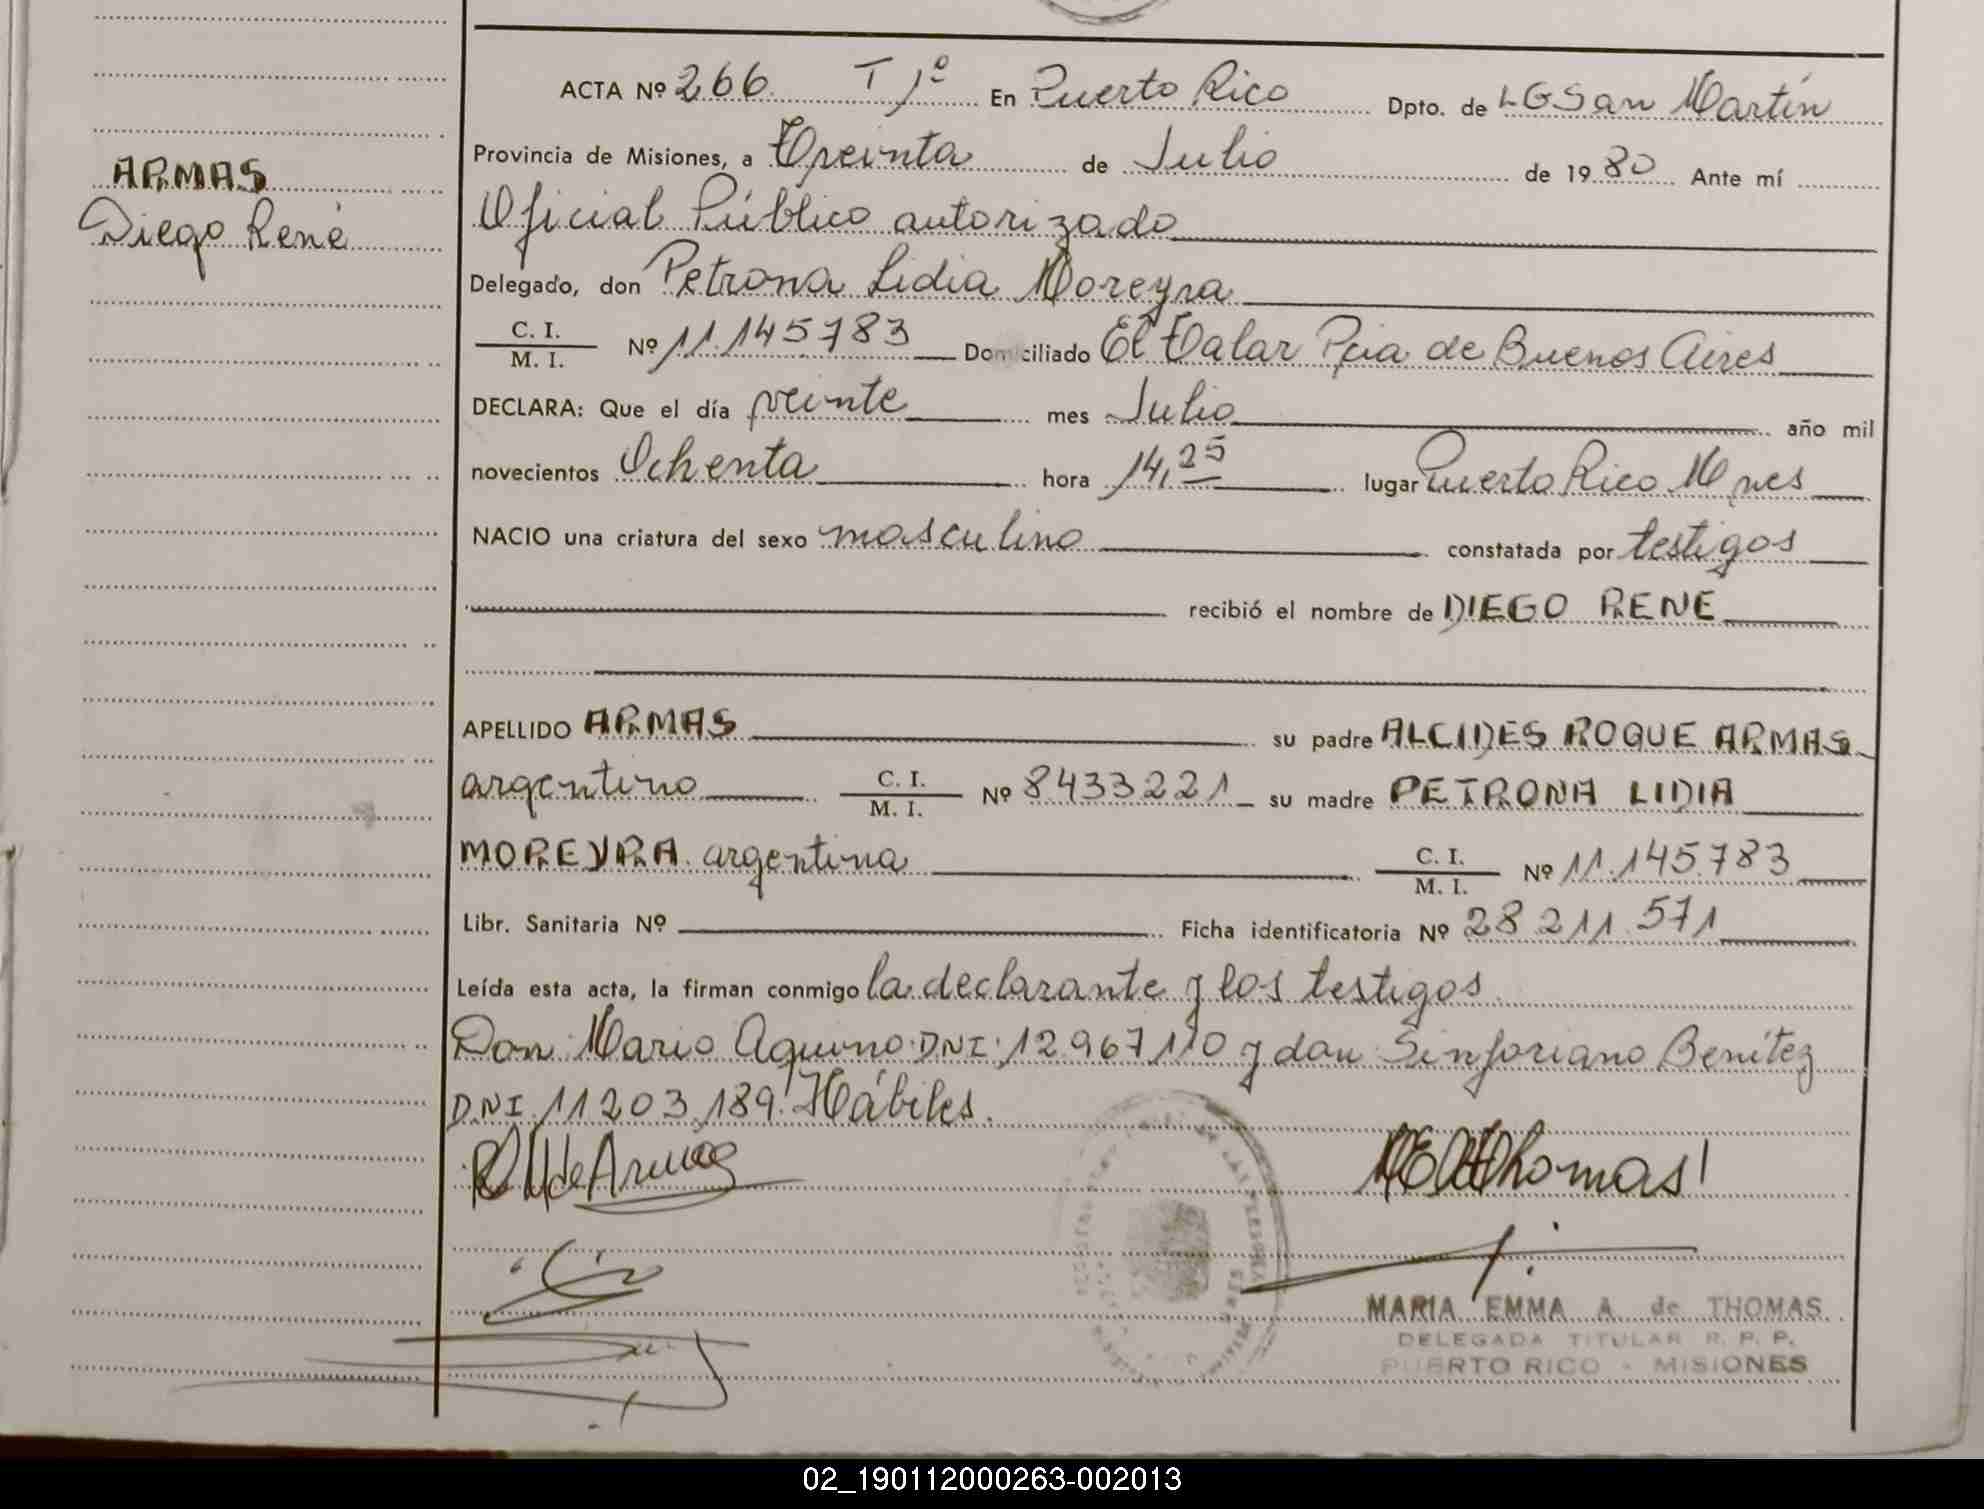 ACTA Nº 266 T 1º En Puerto Rico Dpto. de LGSan Martín
Provincia de Misiones, a Treinta de Julio de 1980 Ante mí
ARMAS
Diego René
Oficial Público autorizado
Delegado, don Petrona Lidia Moreyra
C. I.
M. I.
Nº 11.145783 Domiciliado El Talar Pcia de Buenos Aires
DECLARA: Que el día veinte mes Julio año mil
novecientos Ochenta hora 14,25 lugar Puerto Rico Mnes
NACIO una criatura del sexo masculino constatada por testigos
recibió el nombre de DIEGO RENE
APELLIDO ARMAS su padre ALCIDES ROQUE ARMAS
argentino C. I. M. I. Nº 8433221 su madre PETRONA LIDIA
MOREYRA argentina C. I. M. I. Nº 11.145.783
Libr. Sanitaria Nº Ficha identificatoria Nº 28 211.571
Leída esta acta, la firman conmigo la declarante y los testigos
Don Mario Aquino DNI: 12.967110 y don Sinforiano Benítez
DNI 11203.189. Hábiles.
MARIA EMMA A. de THOMAS
DELEGADA TITULAR R. P. P.
PUERTO RICO - MISIONES
02_190112000263-002013